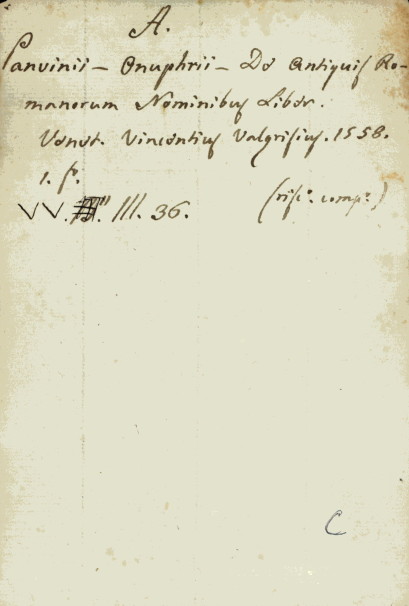 A.
Panvinii - Onuphrii - De Antiquis Ro-
manorum Nominibus Liber.
Venet. Vincentius Valgrisius. 1558.
1. f.
VV. III. 36. (risc.° comp.°)
C